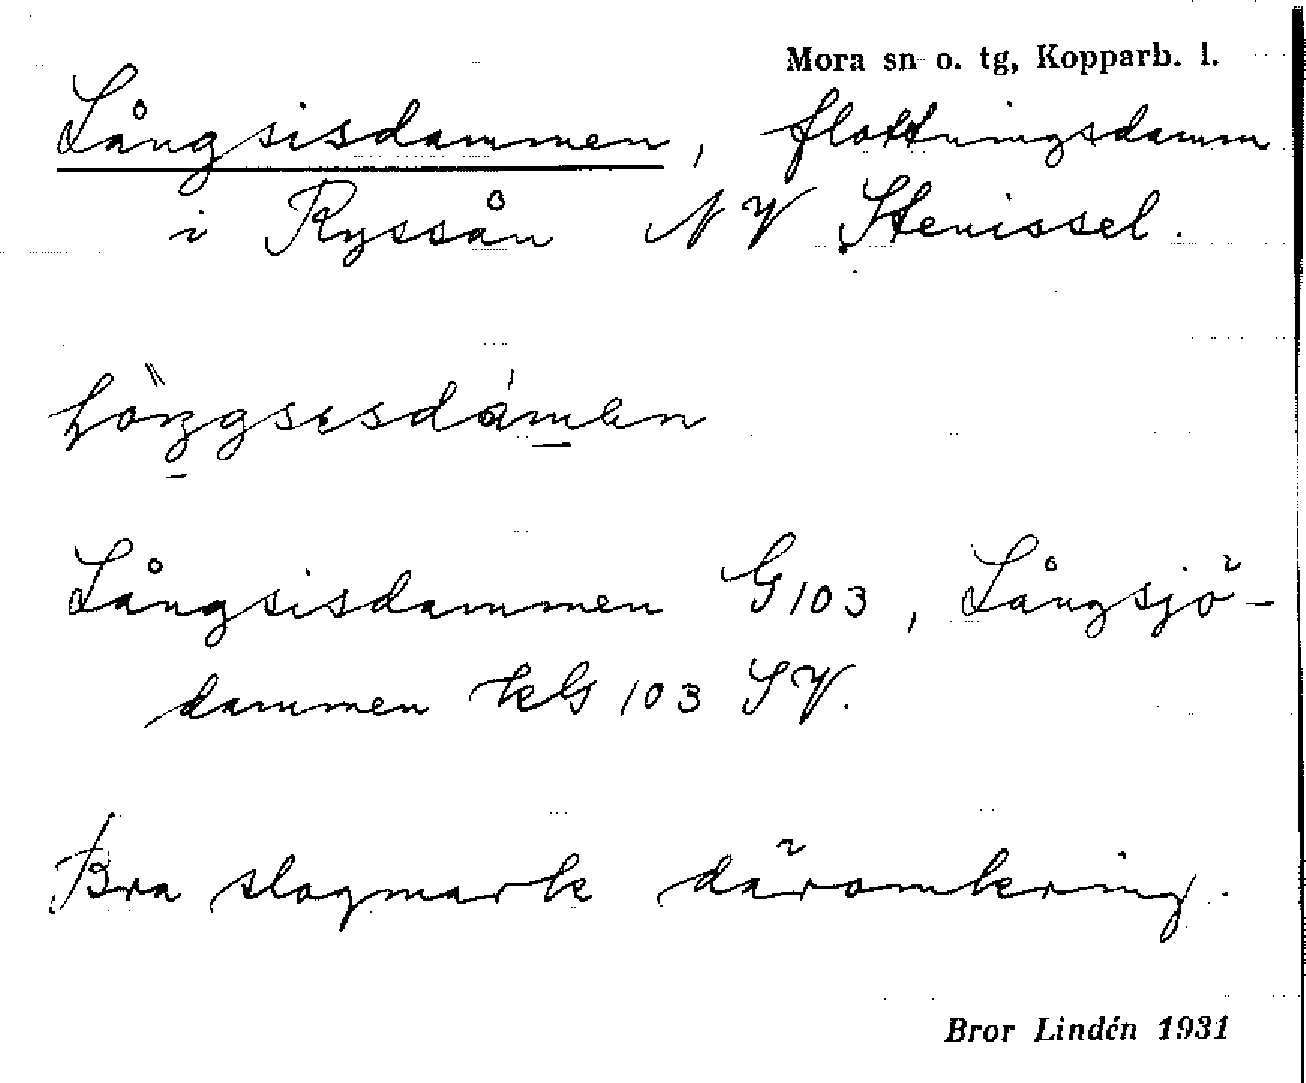 Mora sn o. tg, Kopparb. l.
Långsisdammen, flottningsdamm
i Ryssån NV Stenissel.
Långsisdammen G103, Långsjö-
dammen kG 103 SV.
Bra slogmark däromkring.
Bror Lindén 1931